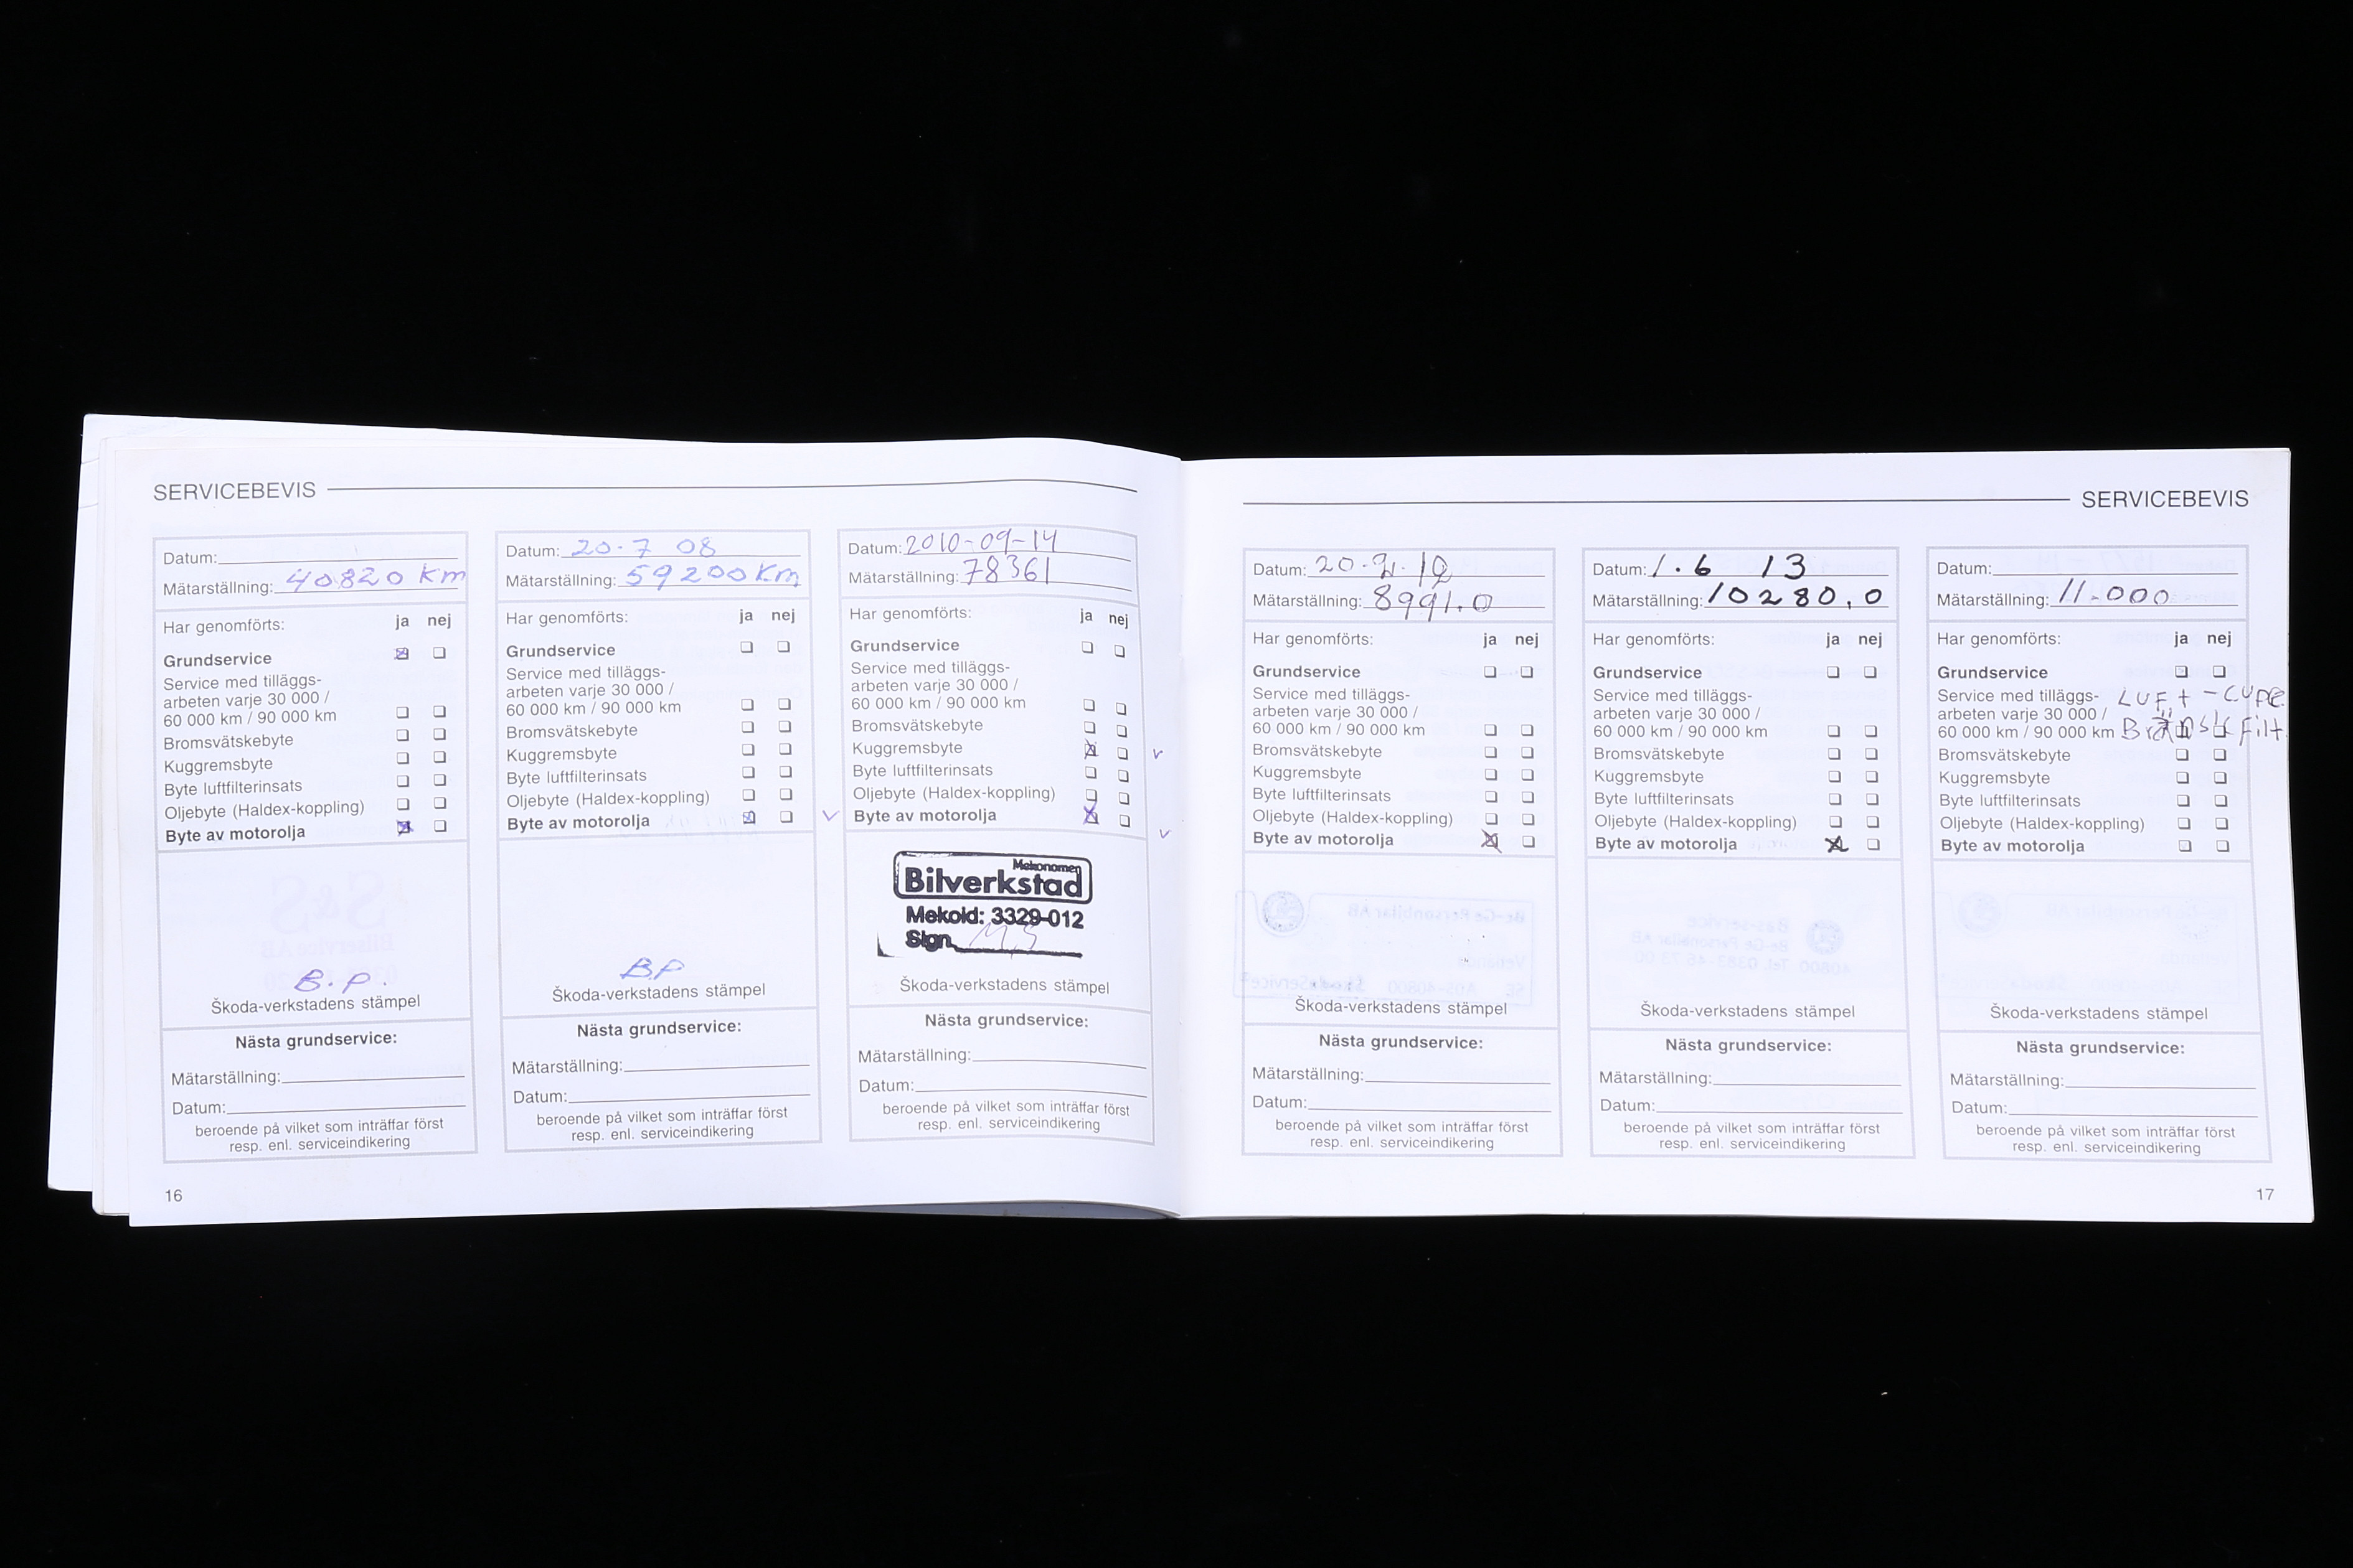 SERVICEBEVIS
Datum:
Mätarställning: 40820 Km
Har genomförts: ja nej
Grundservice
Service med tilläggs-
arbeten varje 30 000 /
60 000 km / 90 000 km
Bromsvätskebyte
Kuggremsbyte
Byte luftfilterinsats
Oljebyte (Haldex-koppling)
Byte av motorolja
B.P.
Škoda-verkstadens stämpel
Nästa grundservice:
Mätarställning:
Datum:
beroende på vilket som inträffar först
resp. enl. serviceindikering
16
Datum: 20-7 08
Mätarställning: 59200 Km
Har genomförts: ja nej
Grundservice
Service med tilläggs-
arbeten varje 30 000 /
60 000 km / 90 000 km
Bromsvätskebyte
Kuggremsbyte
Byte luftfilterinsats
Oljebyte (Haldex-koppling)
Byte av motorolja
B.P
Škoda-verkstadens stämpel
Nästa grundservice:
Mätarställning:
Datum:
beroende på vilket som inträffar först
resp. enl. serviceindikering
Datum: 2010-09-14
Mätarställning: 78361
Har genomförts: ja nej
Grundservice
Service med tilläggs-
arbeten varje 30 000 /
60 000 km / 90 000 km
Bromsvätskebyte
Kuggremsbyte
Byte luftfilterinsats
Oljebyte (Haldex-koppling)
Byte av motorolja
Mekonomen
Bilverkstad
MekoId: 3329-012
Sign.
Škoda-verkstadens stämpel
Nästa grundservice:
Mätarställning:
Datum:
beroende på vilket som inträffar först
resp. enl. serviceindikering
SERVICEBEVIS
Datum:
Mätarställning: 8991.0
Har genomförts: ja nej
Grundservice
Service med tilläggs-
arbeten varje 30 000 /
60 000 km / 90 000 km
Bromsvätskebyte
Kuggremsbyte
Byte luftfilterinsats
Oljebyte (Haldex-koppling)
Byte av motorolja
Škoda-verkstadens stämpel
Nästa grundservice:
Mätarställning:
Datum:
beroende på vilket som inträffar först
resp. enl. serviceindikering
Datum: 1.6 13
Mätarställning: 10280,0
Har genomförts: ja nej
Grundservice
Service med tilläggs-
arbeten varje 30 000 /
60 000 km / 90 000 km
Bromsvätskebyte
Kuggremsbyte
Byte luftfilterinsats
Oljebyte (Haldex-koppling)
Byte av motorolja
Škoda-verkstadens stämpel
Nästa grundservice:
Mätarställning:
Datum:
beroende på vilket som inträffar först
resp. enl. serviceindikering
Datum:
Mätarställning: 11.000
Har genomförts: ja nej
Grundservice
Service med tilläggs- LUFt - CUPE
arbeten varje 30 000 /
60 000 km / 90 000 km Filt.
Bromsvätskebyte
Kuggremsbyte
Byte luftfilterinsats
Oljebyte (Haldex-koppling)
Byte av motorolja
Škoda-verkstadens stämpel
Nästa grundservice:
Mätarställning:
Datum:
beroende på vilket som inträffar först
resp. enl. serviceindikering
17